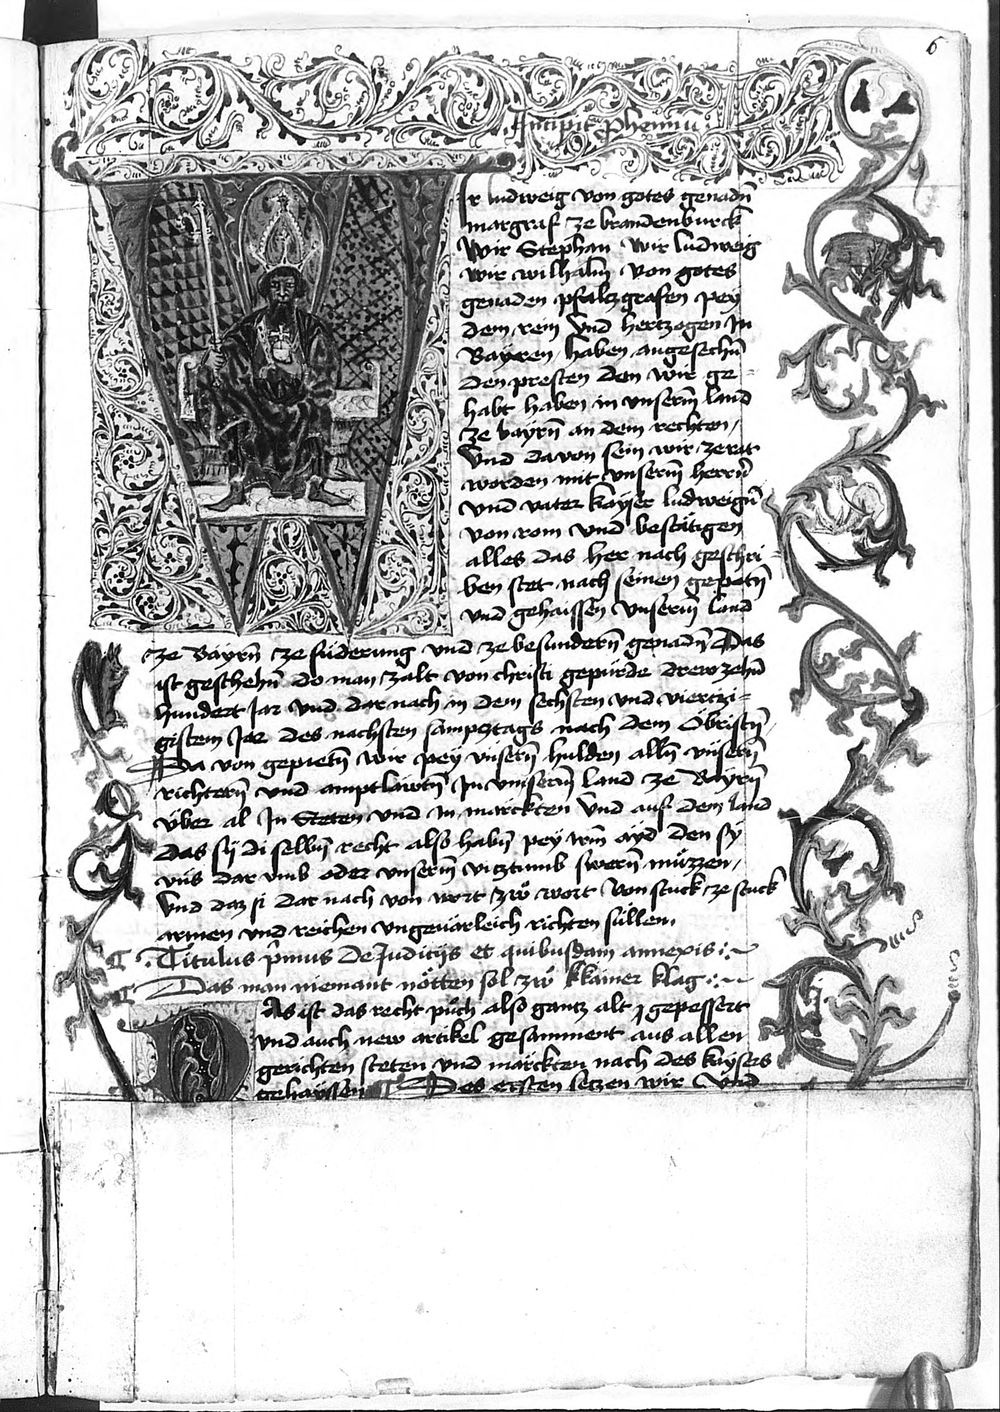 6
Incipit prhemiu
Ir ludweig von gotes genadn̄
margraf ze brandenburck
Wir Stephan Wir ludweig
wir wilhalm von gotes
genaden pfaltzgrafen pey
dem rein Vnd hertzogen in
Bayren haben angesechn̄
den presten den wir ge-
habt haben in vnserm̄ land
ze bayrn̄ an dem rechten /
Vnd davon sein wir zerat
worden mit vnserm̄ herrn̄
vnd vater kayser ludweign̄
von rom vnd bestätigen
alles das her nach geschri-
ben stet nach seinen gepotn̄
vnd gehaissen vnserm̄ land
ze Bayrn̄ cze füderung vnd ze besundern̄ genadn̄ Das
ist geschehn̄ do man zalt von christi gepürde drewzehn̄
hundert Jar vnd dar nach in dem sechsten vnd viertzi-
gistem Jar des nachsten sampstags nach dem Obristn̄ /
Da von gepietn̄ wir pey vnsern̄ hulden alln̄ vnsern̄
richtern̄ vnd amptläwtn̄ In vnserm̄ land ze Bayrn̄
über al In Steten vnd in marckten Vnd auf dem land
das sy di selbn̄ recht also habn̄ pey irm̄ ayd den sy
vns dar vmb oder vnserm̄ viztumb swern̄ müzzen /
Vnd daz si dar nach von wort zwo wort von stuck ze stuck
armen vnd reichen vngeuärleich richten süllen
Titulus p̄mus De Judicijs et quibusdam annexis :~
Das man niemant nötten sol zwo kkainer klag :~
DAs ist das recht puch also gantz alt gepessert
vnd auch new artikel gesamment aus allen
gerichten steten vnd märckten nach des kayses
gehayssen Des ersten setzen wir Vnd